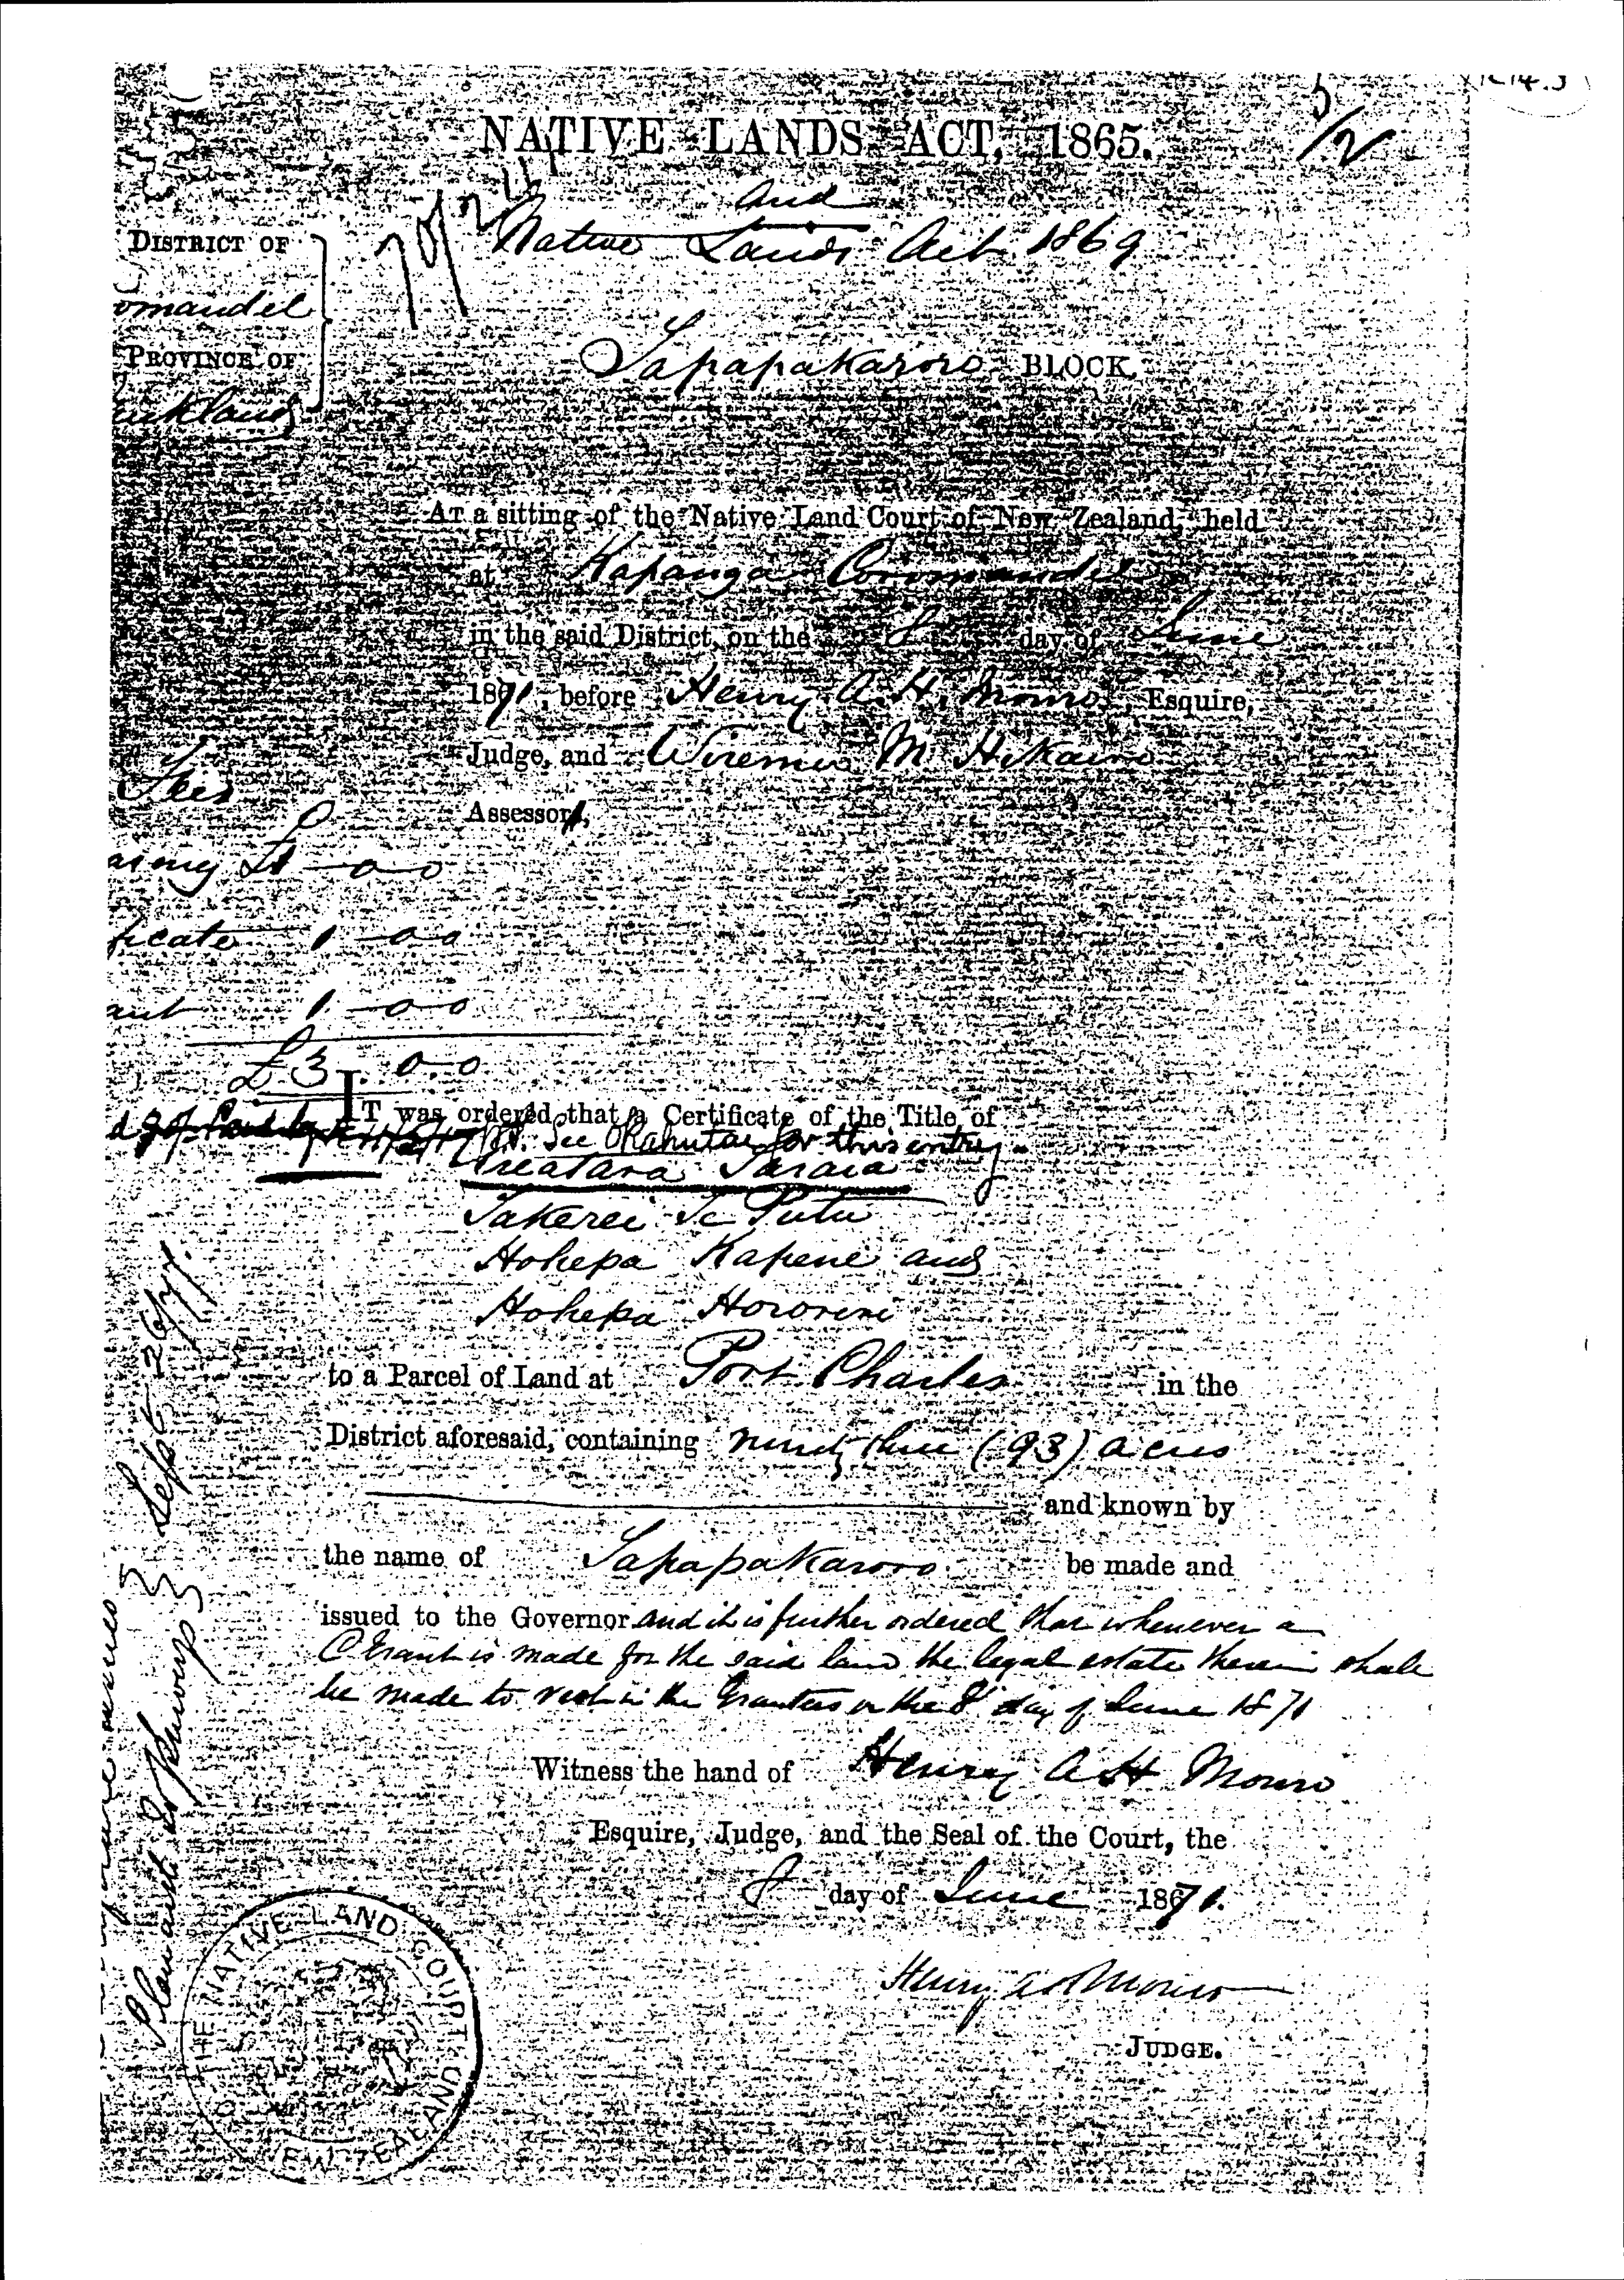 NATIVE LANDS ACT, 1865.
and
Native Lands Act 1869
DISTRICT OF
omandel
PROVINCE OF
uckland
Tapapakaroro BLOCK.
AT a sitting of the Native Land Court of New Zealand, held
at Kapanga Coromandel
in the said District, on the 8 day of June
1871, before Henry A. H. Monro, Esquire,
Judge, and Wiremu M Hikairo
Assessor,
Fees
£1-0-0
ficate 1-0-0
ant 1-0-0
£3.0-0
IT was ordered that a Certificate of the Title of
See Okahutai for this entry
Areatara Taraia
Takerei Te Putu
Hohepa Kapene and
Hohepa Hororiri
to a Parcel of Land at Port Charles in the
District aforesaid, containing ninety three (93) acres
and known by
the name of Tapapakaroro be made and
issued to the Governor and it is further ordered that whenever a
C Grant is made for the said land the legal estate therein shall
be made to vest in the Grantees on the 8 day of June 1871
Witness the hand of Henry A H Monro
Esquire, Judge, and the Seal of the Court, the
8 day of June 1871.
Henry A H Monro
JUDGE.
THE NATIVE LAND COURT OF NEW ZEALAND